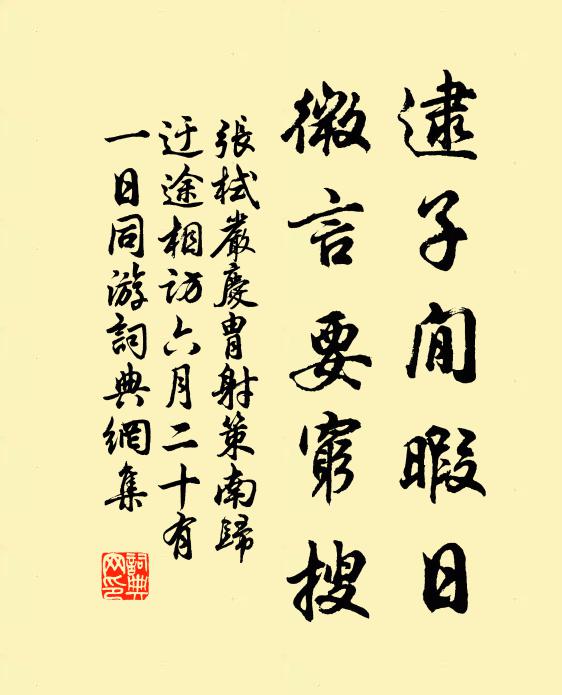 逮子閒暇日
微言要窮搜
張栻嚴慶胄射策南歸
迂途相訪六月二十有
一日同游詞典網集
詞典網印